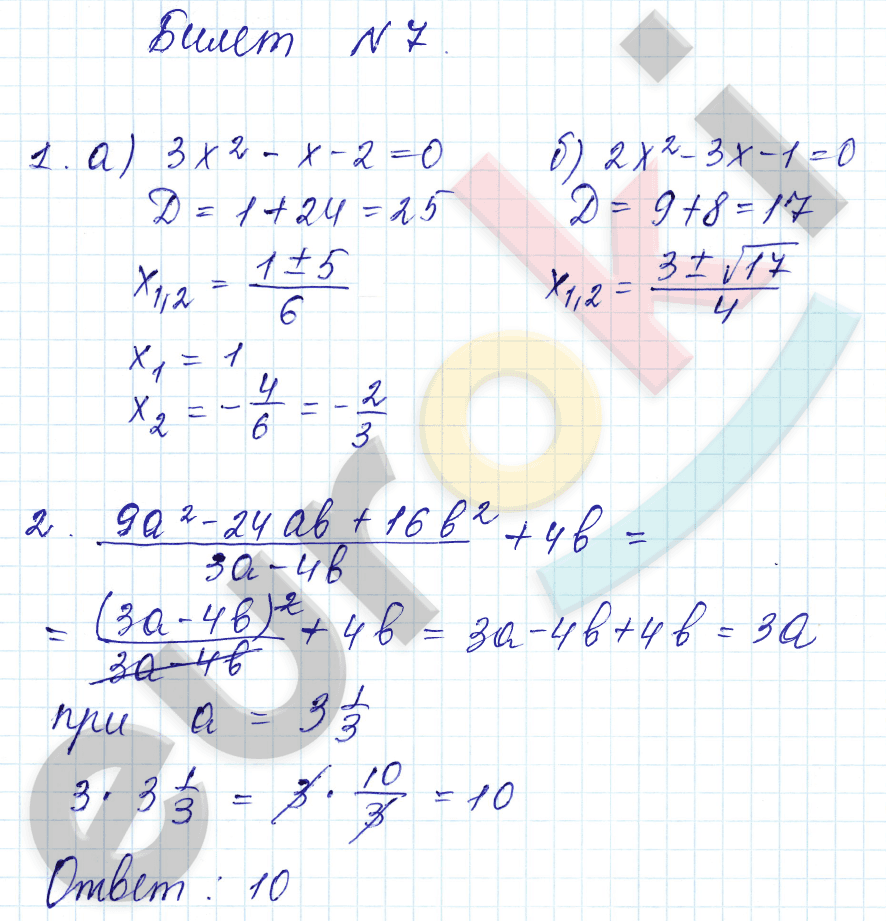 Билет N 7.
1. а) 3x² - x - 2 = 0
Д = 1 + 24 = 25
x₁,₂ = (1 ± 5)/6
x₁ = 1
x₂ = -4/6 = -2/3
б) 2x² - 3x - 1 = 0
Д = 9 + 8 = 17
x₁,₂ = (3 ± √17)/4
2. (9a² - 24ab + 16b²)/(3a - 4b) + 4b =
= (3a - 4b)²/(3a - 4b) + 4b = 3a - 4b + 4b = 3a
при a = 3 1/3
3 · 3 1/3 = 3 · 10/3 = 10
Ответ: 10
euroki